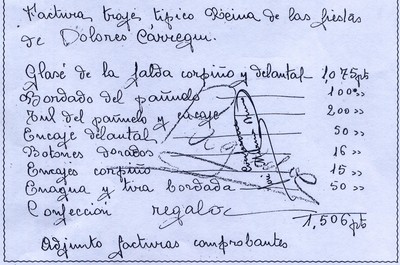 Factura traje típico Reina de las fiestas
de Dolores Cárregui.
Glasé de la falda corpiño y delantal 1,075 pts
Bordado del pañuelo 100 »
Tul del pañuelo y encaje 200 »
Encaje delantal 50 »
Botones dorados 16 »
Encajes corpiño 15 »
Enagua y tira bordada 50 »
Confección regalo
1,506 pts
Adjunto facturas comprobantes